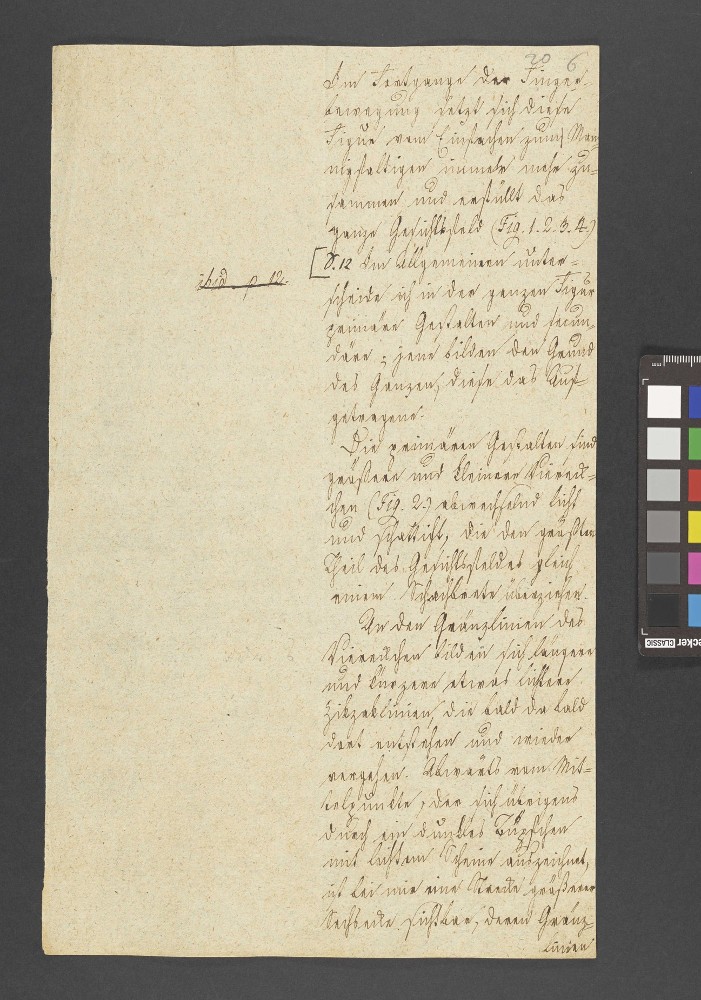 20 6
Im Fortgange der Finger-
bewegung setzt sich diese
Figur vom Einfachen zum Man-
nigfaltigen immer mehr zu-
sammen und erfüllt das
ganze Gesichtsfeld (Fig. 1. 2. 3. 4.)
ibid p. 12.
[S. 12 Im Allgemeinen unter-
scheide ich in der ganzen Figur
primäre Gestalten und secun-
däre; jene bilden den Grund
des Ganzen, diese das Auf-
getragene.
Die primären Gestalten sind
größere und kleinere Viereck-
chen (Fig. 2.) abwechselnd licht
und schatticht, die den größten
Theil des Gesichtsfeldes gleich
einem Schachbrete überziehen.
An den Gränzlinien des
Viereckchen bilden sich längere
und kürzere etwas lichtere
Zikzaklinien, die bald da bald
dort entstehen und wieder
vergehen. Abwärts vom Mit-
telpunkte, der sich übrigens
durch ein dunkles Tüpfchen
mit lichtem Scheine auszeichnet,
ist bei mir eine Strecke größerer
Sechsecke sichtbar, deren Gränz-
linien